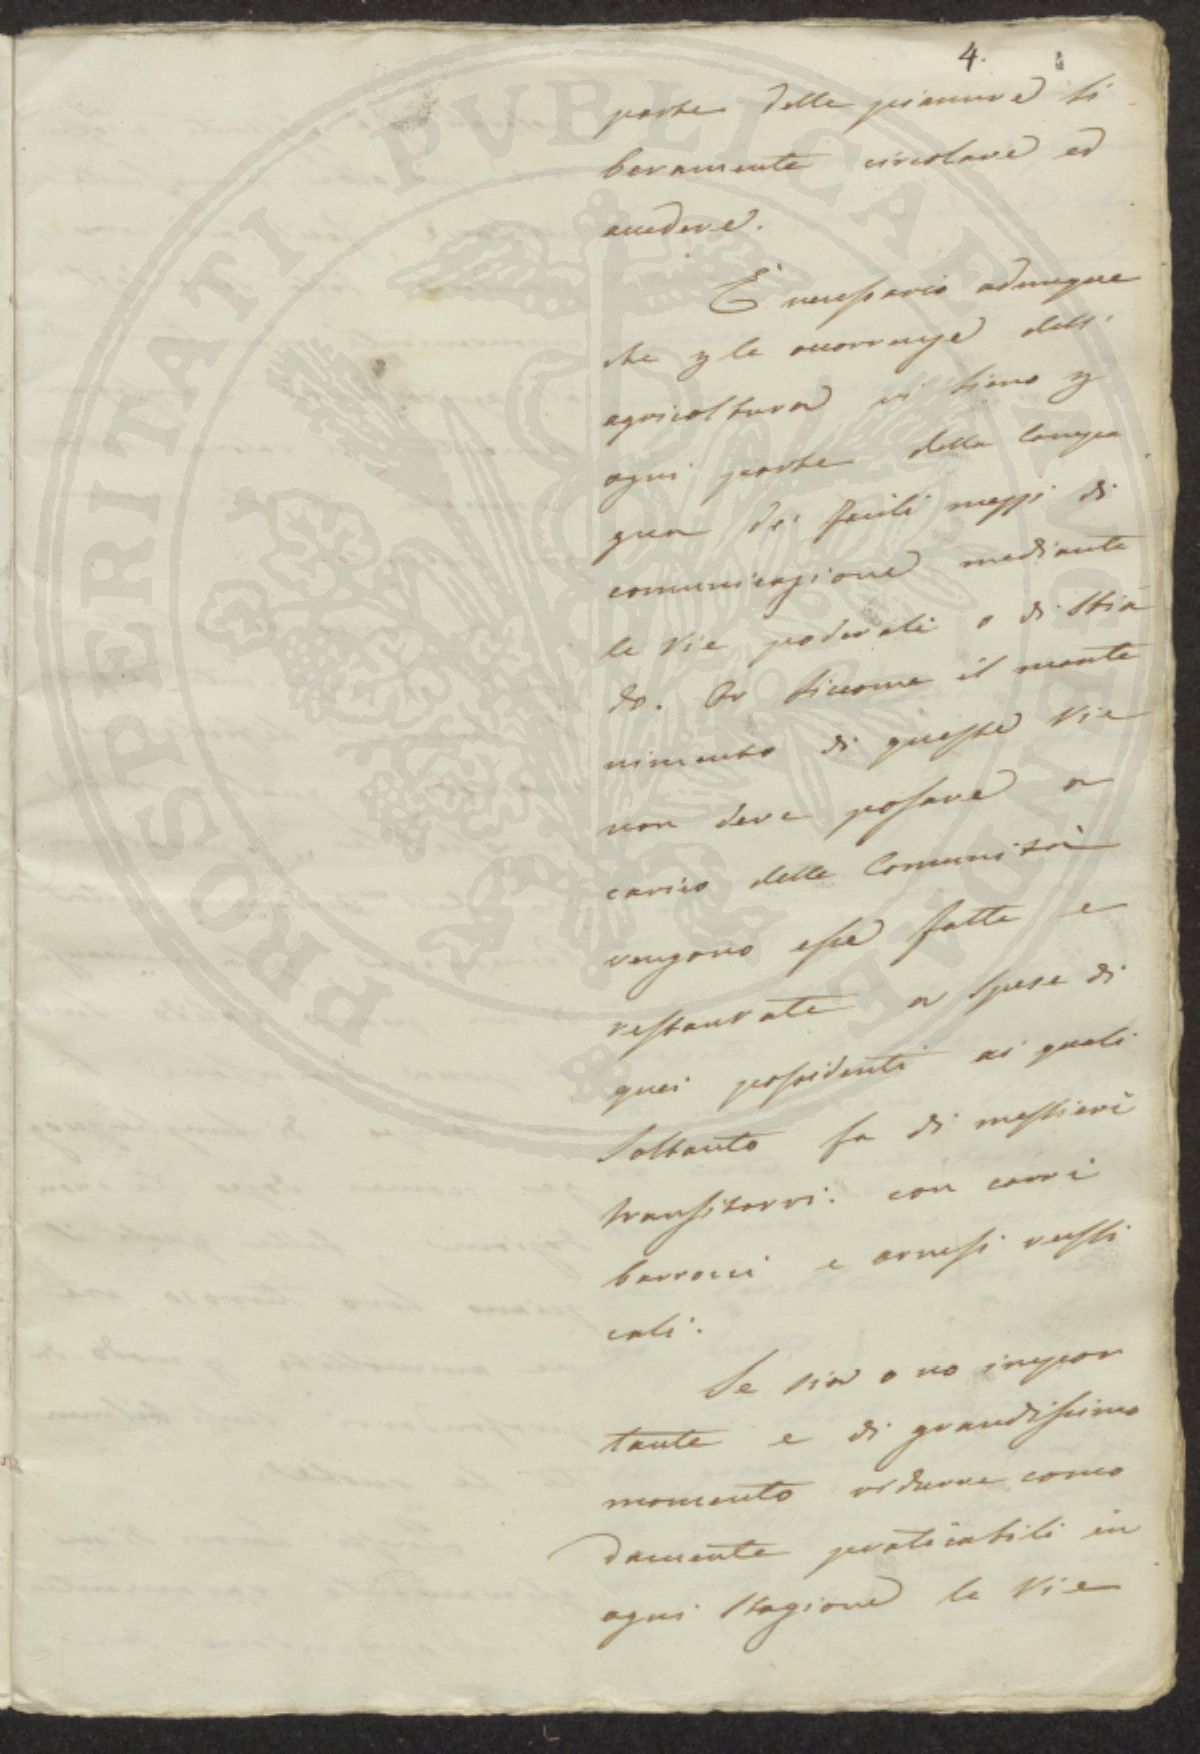 4.
parte della pianura li
beramente circolare ed
accedere.
È necessario adunque
che p le occorrenze dell'
agricoltura vi siano p
ogni parte della Campa
gna dei facili mezzi di
comunicazione mediante
le Vie poderali o di Stra
do. Or siccome il mante
nimento di queste Vie
non deve posare a
carico delle Comunità
vengono esse fatte e
restaurate a spese di
quei possidenti ai quali
soltanto fa di mestieri
transitarvi con carri
barrocci e arnesi rusti
cali.
Se sia o no impor
tante e di grandissimo
momento ridurre como
damente praticabili in
ogni Stagione le Vie
PROSPERITATI PVBLICAE AVGENDAE